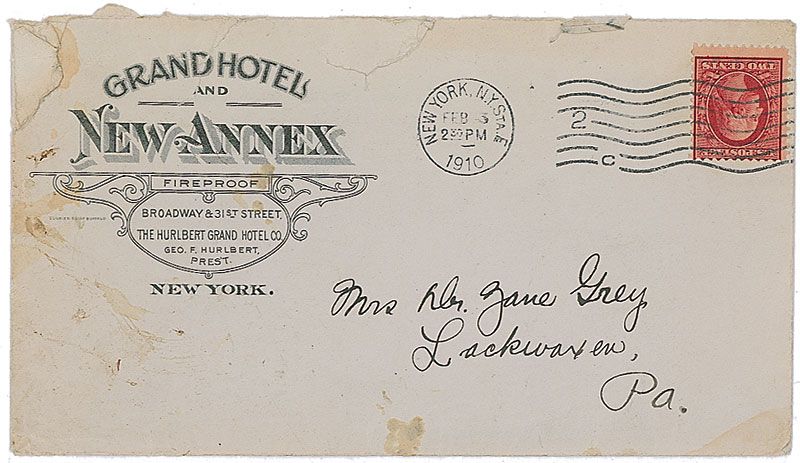 GRAND HOTEL
AND
NEW ANNEX
FIREPROOF
BROADWAY & 31ST STREET,
THE HURLBERT GRAND HOTEL CO.
GEO. F. HURLBERT,
PREST.
NEW YORK.
NEW YORK, N.Y. STA. E
FEB
2 30 PM
1910
2
C
Mrs Dr. Zane Grey
Lackwaxen,
Pa.